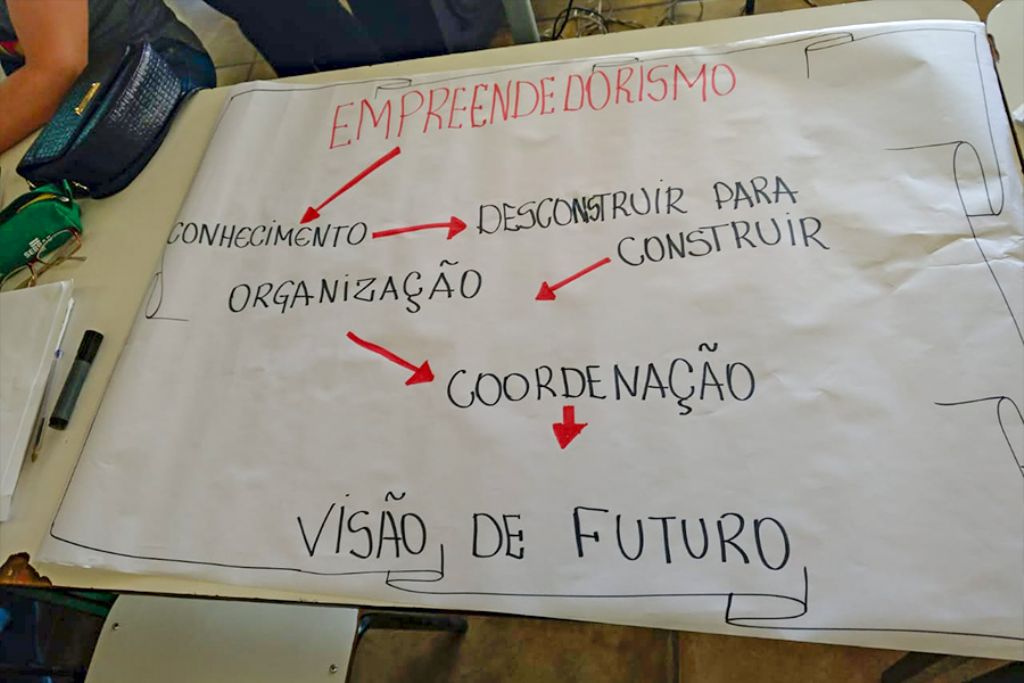 EMPREENDEDORISMO
CONHECIMENTO
DESCONSTRUIR PARA
CONSTRUIR
ORGANIZAÇÃO
COORDENAÇÃO
VISÃO DE FUTURO